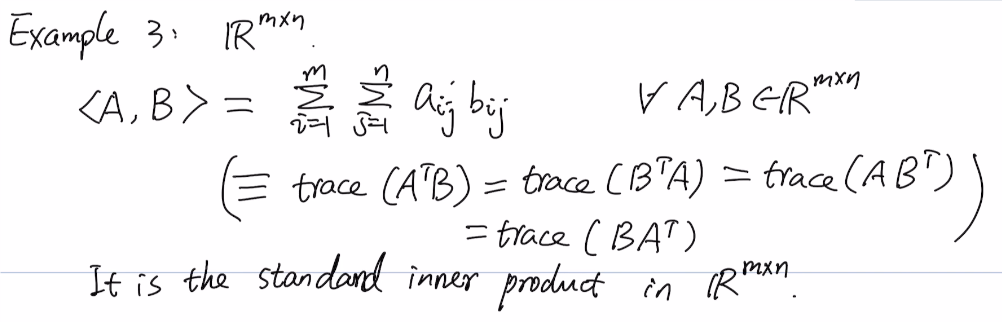 Example 3: ℝ^{m×n}.
<A, B> = \sum_{i=1}^{m} \sum_{j=1}^{n} a_{ij} b_{ij} ∀ A,B ∈ ℝ^{m×n}
(≡ trace (A^T B) = trace (B^T A) = trace (A B^T)
= trace (B A^T))
It is the standard inner product in ℝ^{m×n}.